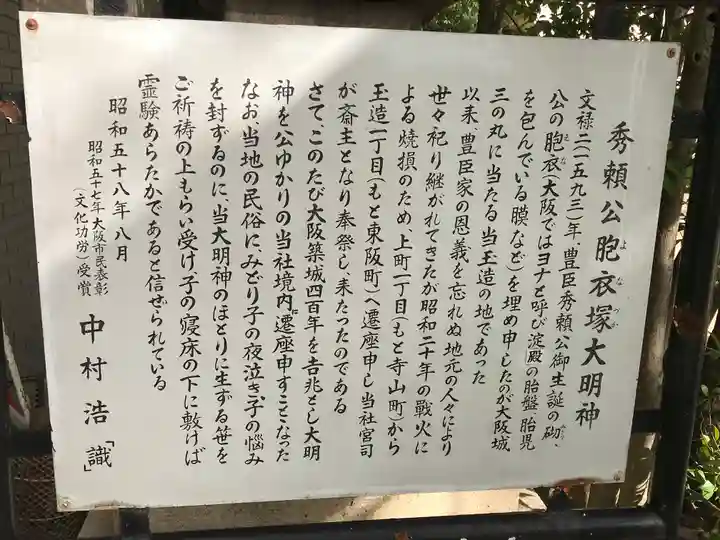 秀頼公胞衣塚大明神
よなづか
文禄二(一五九三)年、豊臣秀頼公御生誕の砌、
みぎり
公の胞衣(大阪ではヨナと呼び淀殿の胎盤、胎児
えな
を包んでいる膜など)を埋め申したのが大阪城
三の丸に当たる当玉造の地であった
以来、豊臣家の恩義を忘れぬ地元の人々により
世々祀り継がれてきたが昭和二十年の戰火に
よる焼損のため、上町一丁目(もと寺山町)から
玉造一丁目(もと東阪町)へ遷座申し当社宮司
が斎主となり奉祭し、来たったのである
さて、このたび大阪築城四百年を吉兆とし大明
神を公ゆかりの当社境内に遷座申すことなった
なお、当地の民俗に、みどり子の夜泣き、子の悩み
を封ずるのに、当大明神のほとりに生ずる笹を
ご祈祷の上もらい受け、子の寝床の下に敷けば
霊験あらたかであると信ぜられている
昭和五十八年八月
昭和五十七年大阪市民表彰
(文化功労)受賞
中村浩「識」